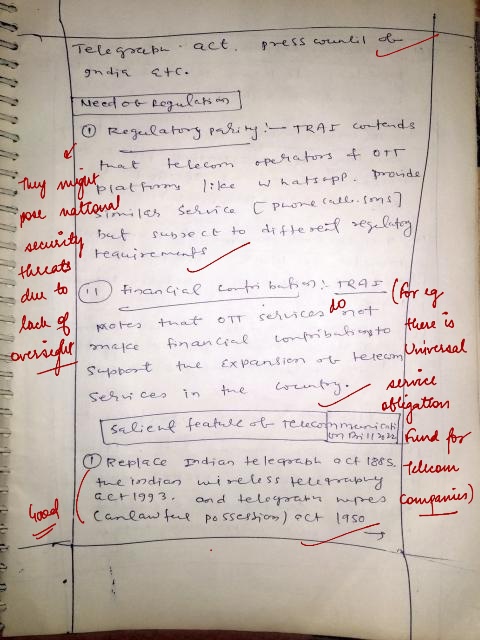 Telegraph act. press council of
India etc.
Need of Regulation
① Regulatory parity :- TRAI contends
that telecom operators & OTT
platforms like whatsapp. provide
similar service [phone calls, sms]
but subject to different regulatory
requirements
They might
pose national
security
threats
due to
lack of
oversight
(11) financial contribution :- TRAI
notes that OTT services do not
make financial contributions to
support the expansion of telecom
services in the country.
(for eg
there is
Universal
service
obligation
Fund for
Telecom
companies)
Salient feature of telecommunication
Bill 2022
① Replace Indian telegraph act 1885.
the indian wireless telegraphy
act 1993. and telegraph wires
(unlawful possession) act 1950
Good